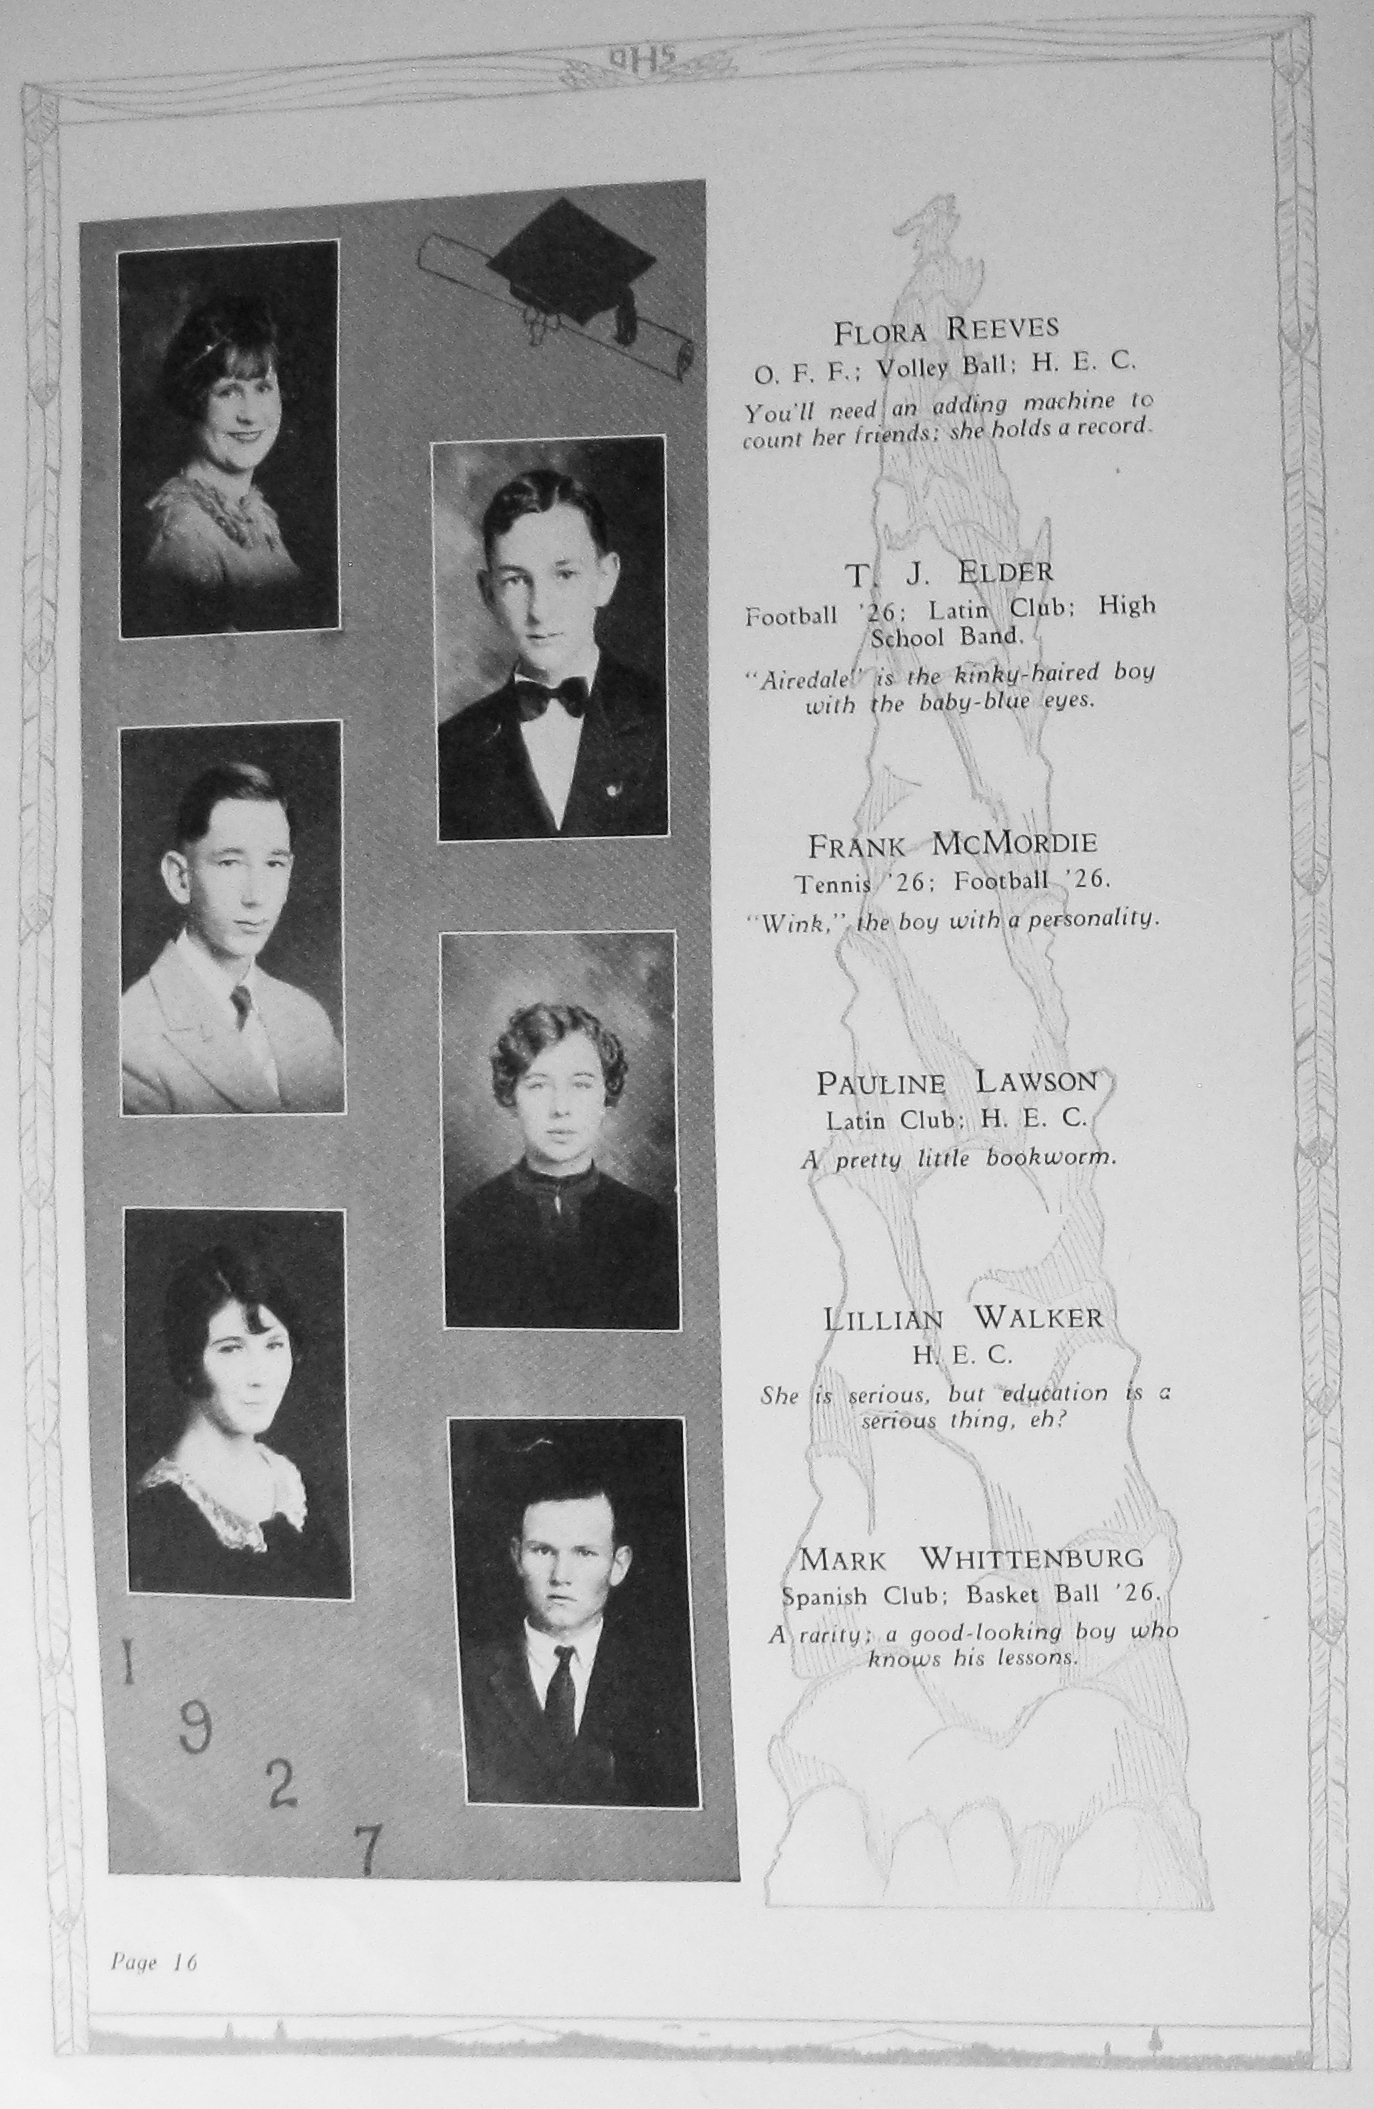 OHS
FLORA REEVES
O. F. F.; Volley Ball; H. E. C.
You'll need an adding machine to
count her friends; she holds a record.
T. J. ELDER
Football '26; Latin Club; High
School Band.
"Airedale" is the kinky-haired boy
with the baby-blue eyes.
FRANK MCMORDIE
Tennis '26; Football '26.
"Wink," the boy with a personality.
PAULINE LAWSON
Latin Club; H. E. C.
A pretty little bookworm.
LILLIAN WALKER
H. E. C.
She is serious, but education is a
serious thing, eh?
MARK WHITTENBURG
Spanish Club; Basket Ball '26.
A rarity; a good-looking boy who
knows his lessons.
1
9
2
7
Page 16